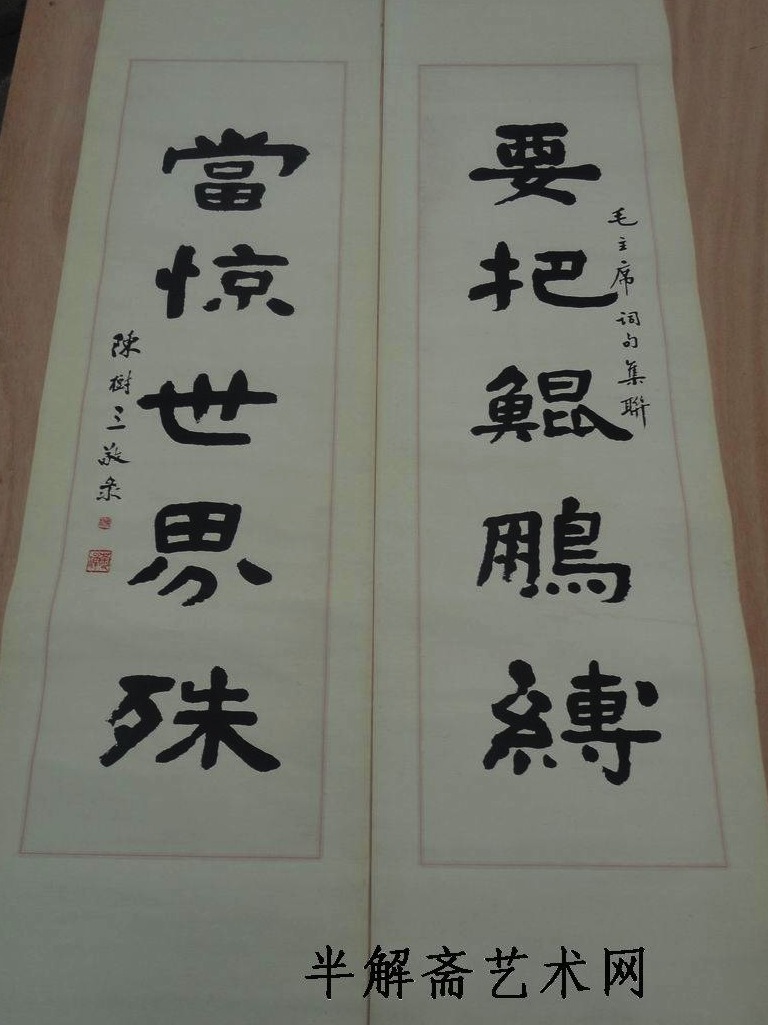 毛主席词句集聯
要把鯤鵬縛
當惊世界殊
陳樹三敬录
半解斋艺术网